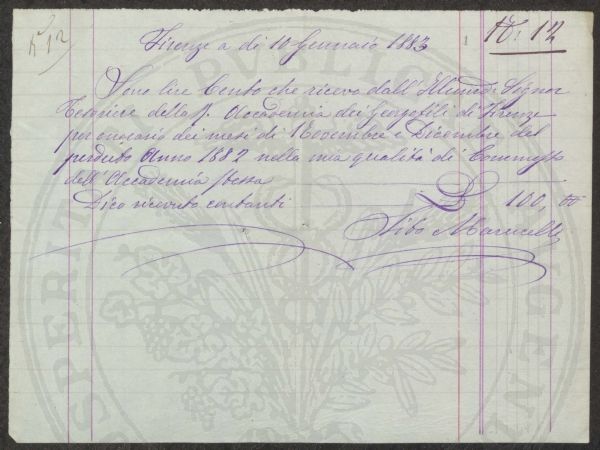 N° 12
N: 12
Firenze a di 10 Gennaio 1883
Sono lire Cento che ricevo dall' Signor
Tesoriere della R. Accademia dei Georgofili di Firenze
per onorario dei mesi di Novembre e Dicembre del
perduto Anno 1882 nella mia qualità di Commesso
dell' Accademia stessa
Dico ricevuto contanti £ 100, 00
Marucelli
PUBLICAE
PROSPERITATI
AUGENDAE